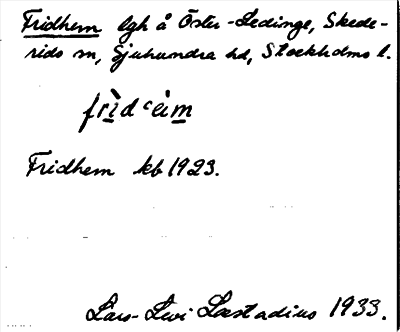 Fridhem lgh å Öster-Ledinge, Skede-
rids sn, Sjuhundra hd, Stockholms l.
frìdʿèim
Fridhem kb 1923.
Lars-Levi Læstadius 1933.